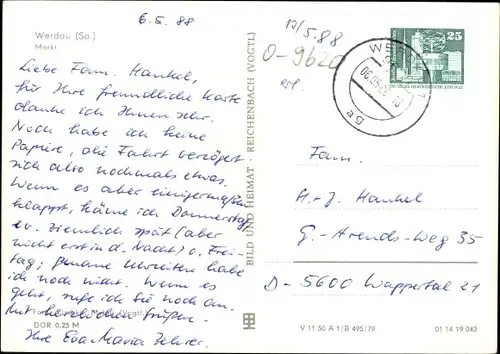 6.5.88
Werdau (Sa.)
Markt
Liebe Fam. Hankel,
für Ihre freundliche Karte
danke ich Ihnen sehr.
Noch habe ich keine
Papiere, die Fahrt verzögert
sich also nochmals etwas.
Wenn es aber einigermaßen
klappt, käme ich Donnerstag
ev. ziemlich spät (aber
nicht erst in d. Nacht) o. Frei-
tag; genaue Uhrzeiten habe
ich noch nicht. Wenn es
geht, rufe ich Sie noch an.
Mit herzlichen Grüßen.
(Vogtl.)
DDR 0.25 M
Ihre Eva-Maria
BILD UND HEIMAT REICHENBACH (VOGTL)
10/5.88
O-9620
25
Fam.
H.-J. Hankel
G.-Arends-Weg 35
D-5600 Wuppertal 21
V 11 50 A 1/B 495/79
01 14 19 042